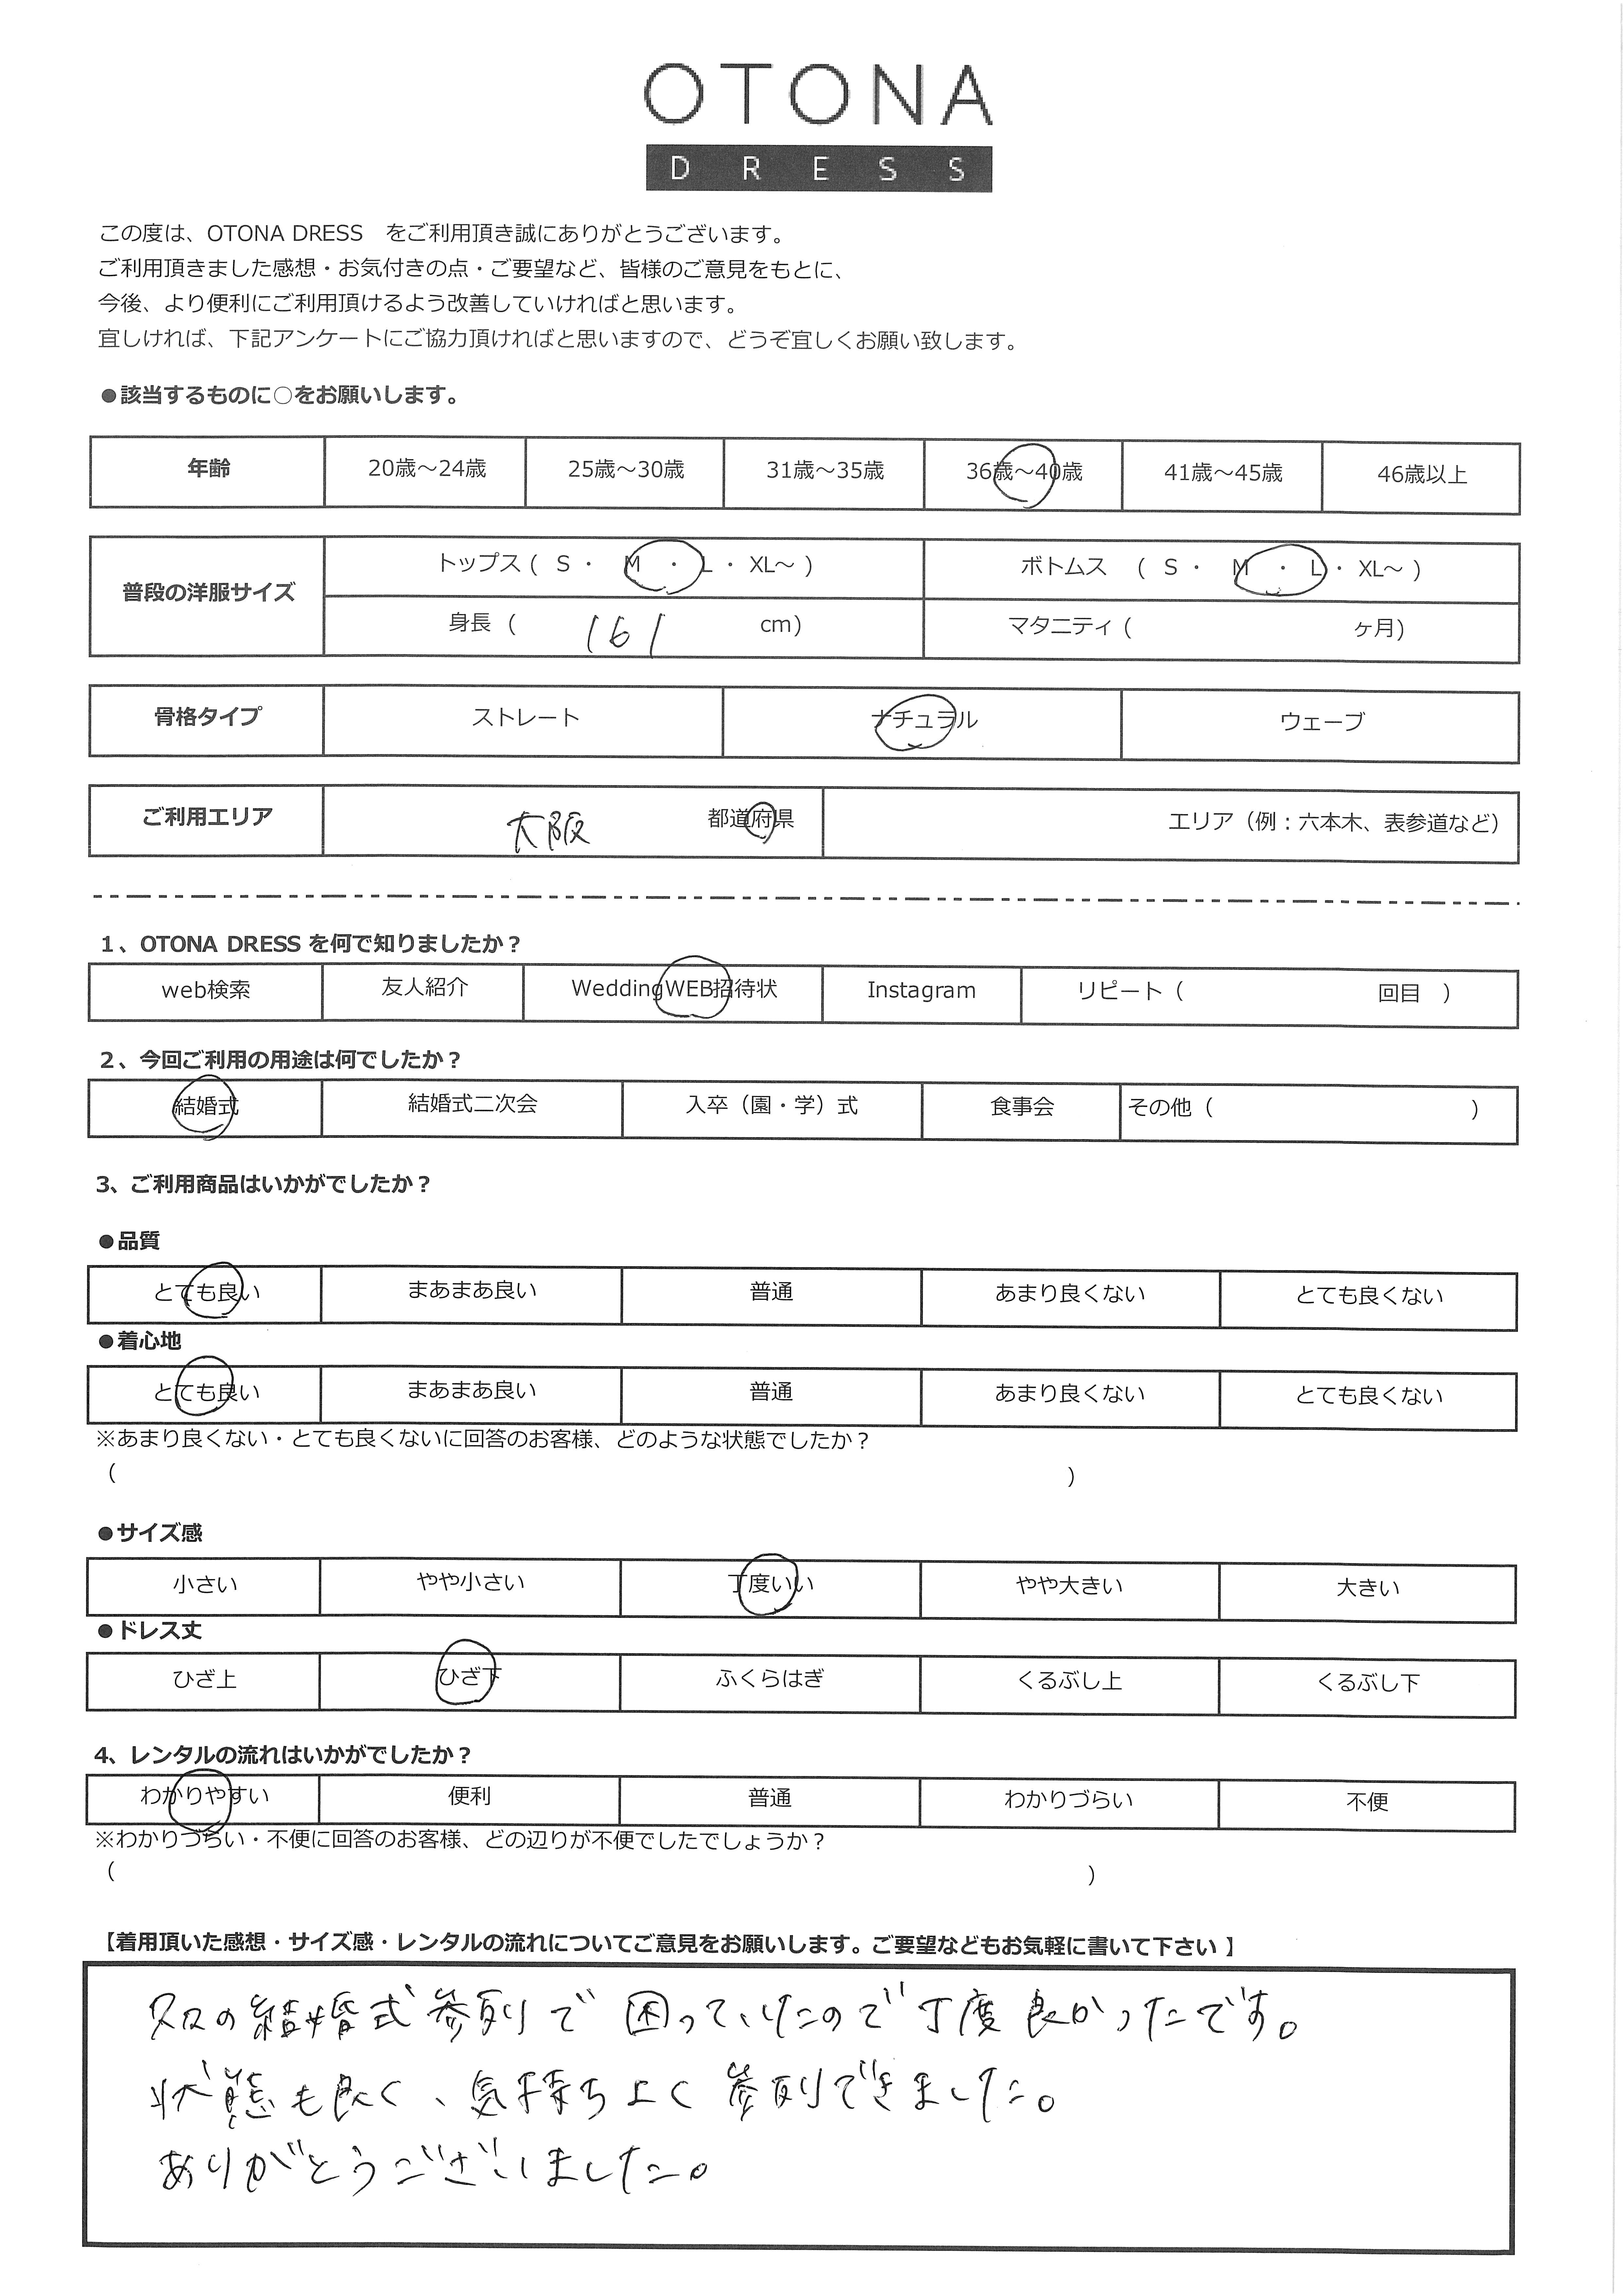 OTONA
DRESS
この度は、OTONA DRESS　をご利用頂き誠にありがとうございます。
ご利用頂きました感想・お気付きの点・ご要望など、皆様のご意見をもとに、
今後、より便利にご利用頂けるよう改善していければと思います。
宜しければ、下記アンケートにご協力頂ければと思いますので、どうぞ宜しくお願い致します。
●該当するものに○をお願いします。
年齢 20歳～24歳 25歳～30歳 31歳～35歳 36歳～40歳 41歳～45歳 46歳以上
普段の洋服サイズ
トップス ( S ・ M ・ L ・ XL～ ) ボトムス ( S ・ M ・ L ・ XL～ )
身長 ( 161 cm) マタニティ ( ヶ月)
骨格タイプ ストレート ナチュラル ウェーブ
ご利用エリア 大阪 都道府県 エリア（例：六本木、表参道など）
1、OTONA DRESS を何で知りましたか？
web検索 友人紹介 WeddingWEB招待状 Instagram リピート（ 回目 ）
2、今回ご利用の用途は何でしたか？
結婚式 結婚式二次会 入卒（園・学）式 食事会 その他（ ）
3、ご利用商品はいかがでしたか？
●品質
とても良い まあまあ良い 普通 あまり良くない とても良くない
●着心地
とても良い まあまあ良い 普通 あまり良くない とても良くない
※あまり良くない・とても良くないに回答のお客様、どのような状態でしたか？
( )
●サイズ感
小さい やや小さい 丁度いい やや大きい 大きい
●ドレス丈
ひざ上 ひざ下 ふくらはぎ くるぶし上 くるぶし下
4、レンタルの流れはいかがでしたか？
わかりやすい 便利 普通 わかりづらい 不便
※わかりづらい・不便に回答のお客様、どの辺りが不便でしたでしょうか？
( )
【着用頂いた感想・サイズ感・レンタルの流れについてご意見をお願いします。ご要望などもお気軽に書いて下さい 】
久々の結婚式参列で困っていたので丁度良かったです。
状態も良く、気持ちよく参列できました。
ありがとうございました。